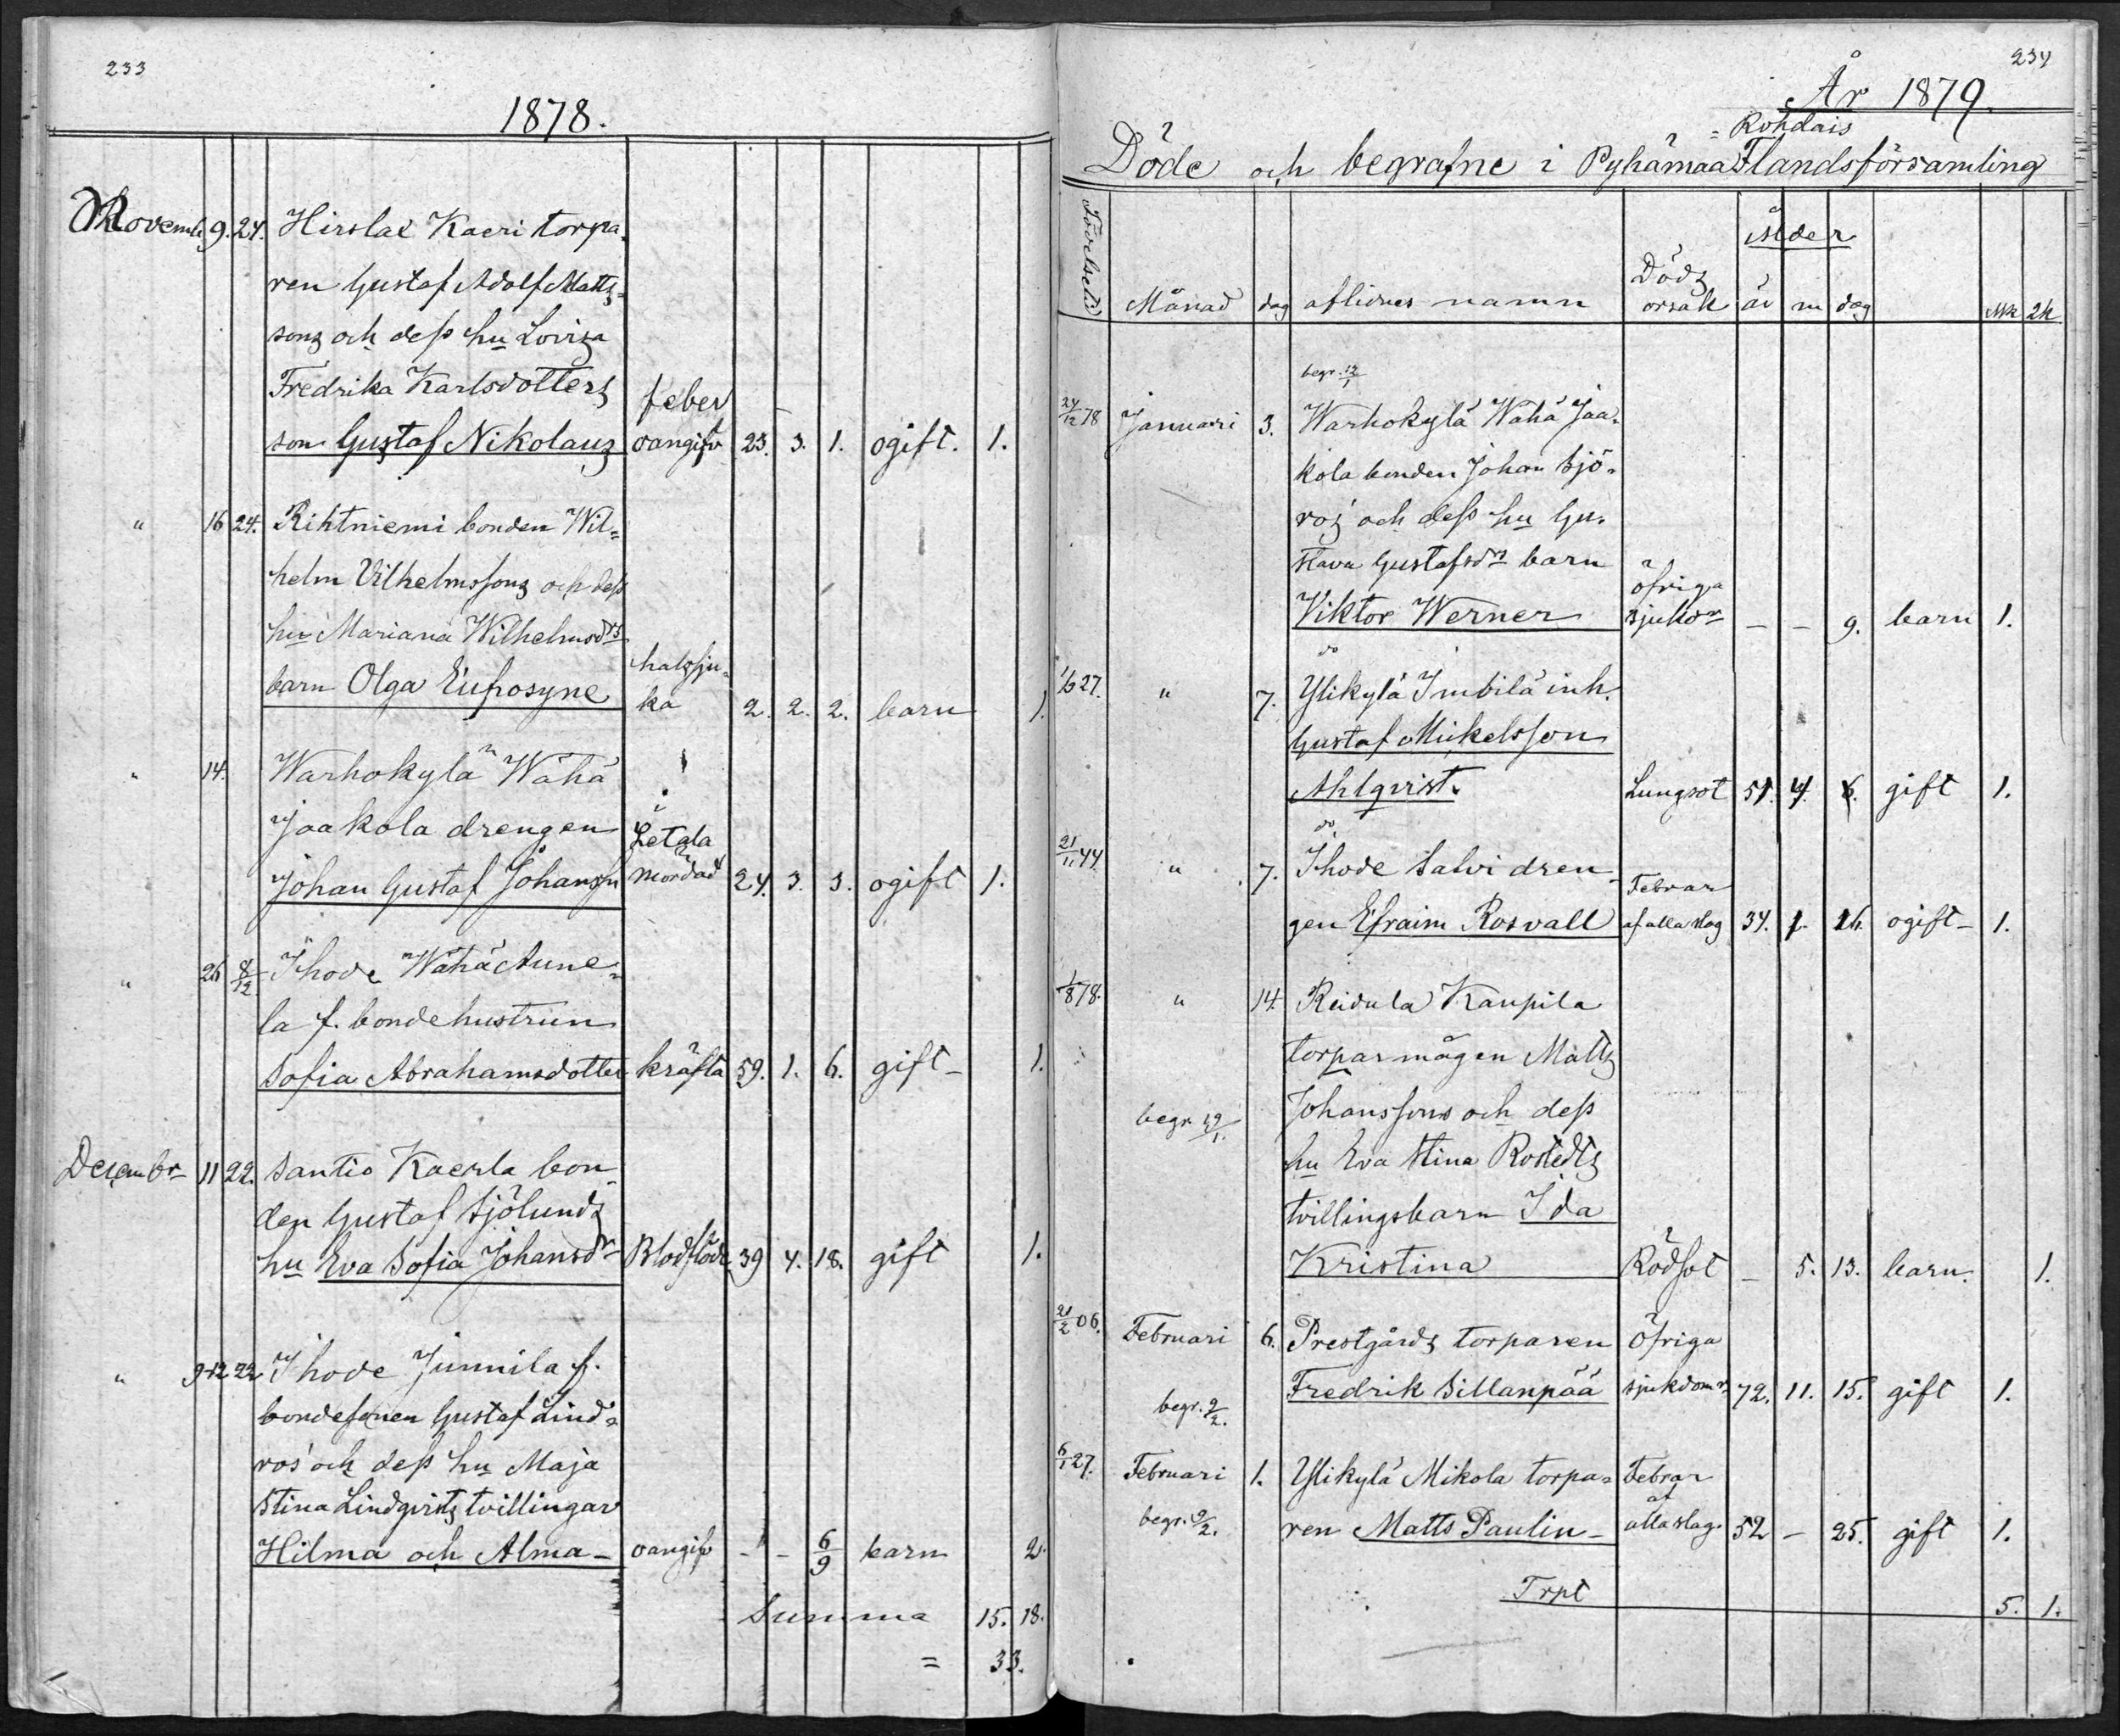 233
1878.
Novemb. 9. 24. Hirslax Kaeri torpa-
ren Gustaf Adolf Matts-
sons och dess hu Lovisa
Fredrika Karlsdotters feber
son Gustaf Nikolaus oangifv 23. 3. 1. ogift. 1.
" 16 24. Rihtniemi bonden Wil-
helm Vilhelmssons och dess
hu Mariana Wilhelmsdrs halssju-
barn Olga Eufrosyne ka 2. 2. 2. barn 1.
" 14. Warhokylä Wähä
Jaakola drengen Letala
Johan Gustaf Johansn mördad 24. 3. 3. ogift 1.
" 26 8/12 Ihode Wähä Aune-
la f. bondehustrun
Sofia Abrahamsdotter kräfta 59. 1. 6. gift - 1.
Decembr 11 22. Santio Kaerla bon-
den Gustaf Sjölunds
hu Eva Sofia Johansdr Blodflöde 39 4. 18. gift 1.
" 9+12 22 Ihode Junnila f.
bondesonen Gustaf Lind-
ros och dess hu Maja
Stina Lindqvists tvillingar
Hilma och Alma - oangifv - - 6/9 barn 2.
Summa 15. 18.
= 33.
234
År 1879.
= Rohdais
Döde och begrafne i Pyhämaa Tlandsförsamling
Födelsetid
Ålder
Månad dag aflidnes namn Döds orsak år m dag Mk 2k
begr. 12/1
24/12 78 Januari 3. Warhokylä Wähä Jaa-
kola bonden Johan Sjö-
ros och dess hu Gu-
stava Gustafsdrs barn öfriga
Viktor Werner sjukdr - - 9. barn 1.
do
1/9 27. " 7. Ylikylä Imbilä inh.
Gustaf Mickelsson
Ahlqvist. Lungsot 51. 4. 6. gift 1.
do
21/11 44 " 7. Ihode Salvi dren- Febrar
gen Efraim Rosvall af alla slag 34. 1. 16. ogift - 1.
1/8 78. " 14. Reidula Kaupila
torparmågen Matts
begr 19/1. Johanssons och dess
hu Eva Stina Rostedts
tvillingsbarn Ida
Kristina Rödsot - 5. 13. barn. 1.
21/2 06. Februari 6. Prestgårds torparen öfriga
begr. 9/2. Fredrik Sillanpää sjukdomr 72. 11. 15. gift 1.
6/1 27. Februari 1. Ylikylä Mikola torpa- Febrar
begr. 9/2. ren Matts Paulin - af alla slag. 52 - 25. gift 1.
Trpt 5. 1.